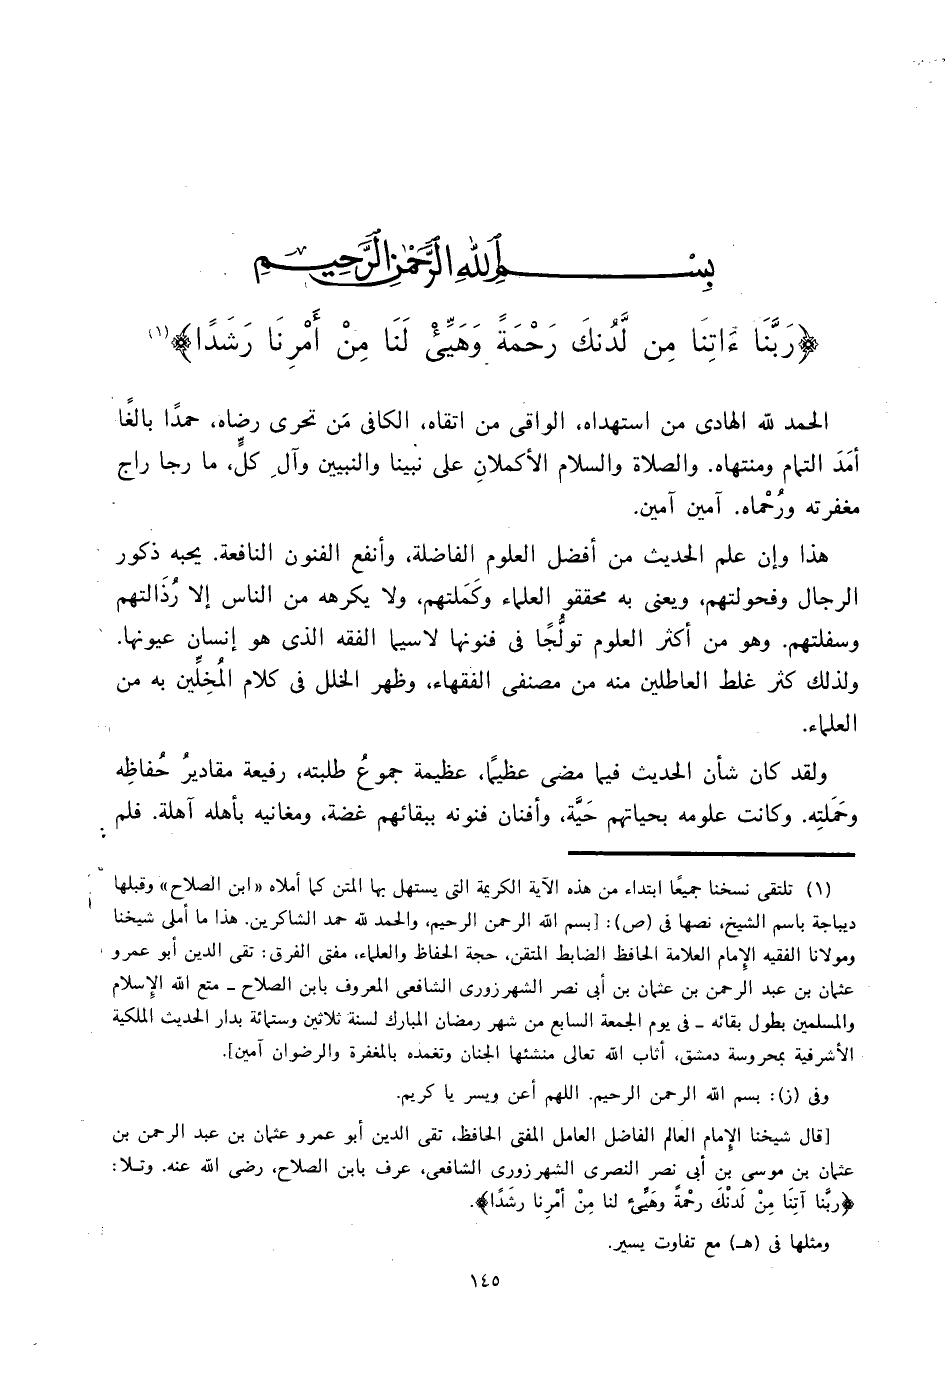 بسم الله الرحمن الرحيم
﴿رَبَّنَا ءَاتِنَا مِن لَّدُنكَ رَحْمَةً وَهَيِّئْ لَنَا مِنْ أَمْرِنَا رَشَدًا﴾(١)
الحمد لله الهادى من استهداه، الواقى من اتقاه، الكافى مَن تحرى رضاه، حمدًا بالغًا
أمَدَ التمام ومنتهاه. والصلاة والسلام الأكملانِ على نبينا والنبيين وآلِ كلٍّ، ما رجا راج
مغفرته ورُحْماه. آمين آمين.
هذا وإن علم الحديث من أفضل العلوم الفاضلة، وأنفع الفنون النافعة. يحبه ذكور
الرجال وفحولتهم، ويعنى به محققو العلماء وكَمَلتهم، ولا يكرهه من الناس إلا رُذَالتهم
وسفلتهم. وهو من أكثر العلوم تولُّجًا فى فنونها لاسيما الفقه الذى هو إنسان عيونها.
ولذلك كثر غلط العاطلين منه من مصنفى الفقهاء، وظهر الخلل فى كلام المُخِلِّين به من
العلماء.
ولقد كان شأن الحديث فيما مضى عظيمًا، عظيمة جموعُ طلبته، رفيعة مقاديرُ حُفاظِه
وحَمَلتِه. وكانت علومه بحياتهم حَيَّة، وأفنان فنونه ببقائهم غضة، ومغانيه بأهله آهلة. فلم
(١) تلتقى نسخنا جميعًا ابتداء من هذه الآية الكريمة التى يستهل بها المتن كما أملاه «ابن الصلاح» وقبلها
ديباجة باسم الشيخ، نصها فى (ص): [بسم الله الرحمن الرحيم، والحمد لله حمد الشاكرين. هذا ما أملى شيخنا
ومولانا الفقيه الإمام العلامة الحافظ الضابط المتقن، حجة الحفاظ والعلماء، مفتى الفرق: تقى الدين أبو عمرو
عثمان بن عبد الرحمن بن عثمان بن أبى نصر الشهرزورى الشافعى المعروف بابن الصلاح - متع الله الإسلام
والمسلمين بطول بقائه - فى يوم الجمعة السابع من شهر رمضان المبارك لسنة ثلاثين وستمائة بدار الحديث الملكية
الأشرفية بمحروسة دمشق، أثاب الله تعالى منشئها الجنان وتغمده بالمغفرة والرضوان آمين].
وفى (ز): بسم الله الرحمن الرحيم. اللهم أعن ويسر يا كريم.
[قال شيخنا الإمام العالم الفاضل العامل المفتى الحافظ، تقى الدين أبو عمرو عثمان بن عبد الرحمن بن
عثمان بن موسى بن أبى نصر النصرى الشهرزورى الشافعى، عرف بابن الصلاح، رضى الله عنه. وتلا:
﴿ربَّنا آتِنَا مِنْ لَدنْكَ رحْمةً وهَيِّئ لنا مِنْ أمْرِنا رشَدًا﴾.
ومثلها فى (هـ) مع تفاوت يسير.
١٤٥